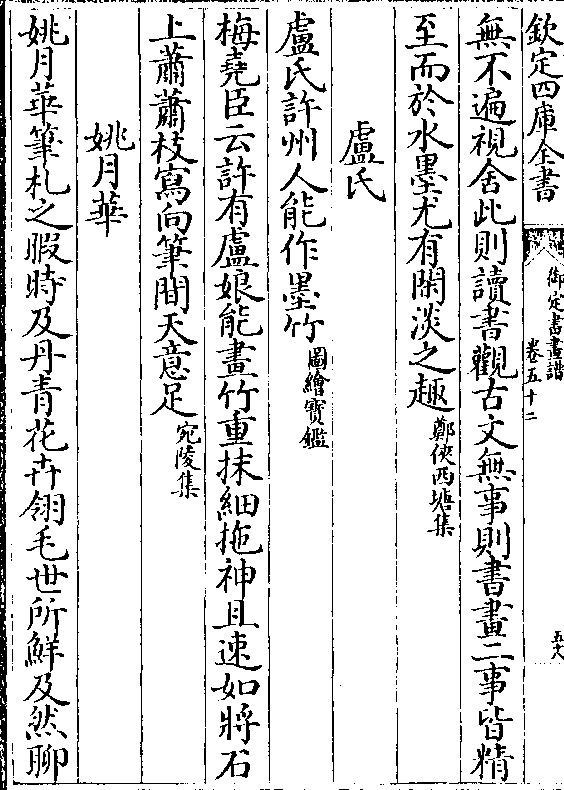 欽定四庫全書
御定書畫譜
卷五十二
五六
無不遍視舍此則讀書觀古文無事則書畫二事皆精
至而於水墨尤有閑淡之趣鄭俠西塘集
盧氏
盧氏許州人能作墨竹圖繪寶鑑
梅堯臣云許有盧娘能畫竹重抹細拖神且速如將石
上蕭蕭枝寫向筆間天意足宛陵集
姚月華
姚月華筆札之暇時及丹青花卉翎毛世所鮮及然聊